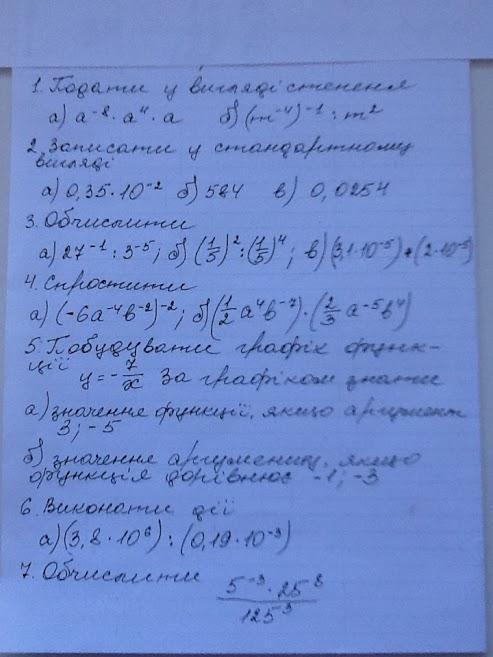 1. Подати у вигляді степеня
а) a⁻⁸ · a⁴ · a б) (m⁻⁴)⁻¹ : m²
2. Записати у стандартному
вигляді
а) 0,35·10⁻² б) 584 в) 0,0254
3. Обчислити
а) 27⁻¹ : 3⁻⁵; б) (1/5)² : (1/5)⁴; в) (3,1·10⁻⁵) · (2·10⁻⁵)
4. Спростити
а) (-6a⁻⁴b⁻²)⁻²; б) (1/2 a⁴b⁻⁷) · (2/3 a⁻⁵b⁴)
5. Побудувати графік функ-
ції y = -7/x За графіком знати
а) значення функції, якщо аргумент
3; -5
б) значення аргументу, якщо
функція дорівнює -1; -3
6. Виконати дії
а) (3,8·10⁶) : (0,19·10⁻³)
7. Обчислити 5⁻³ · 25⁸ / 125³